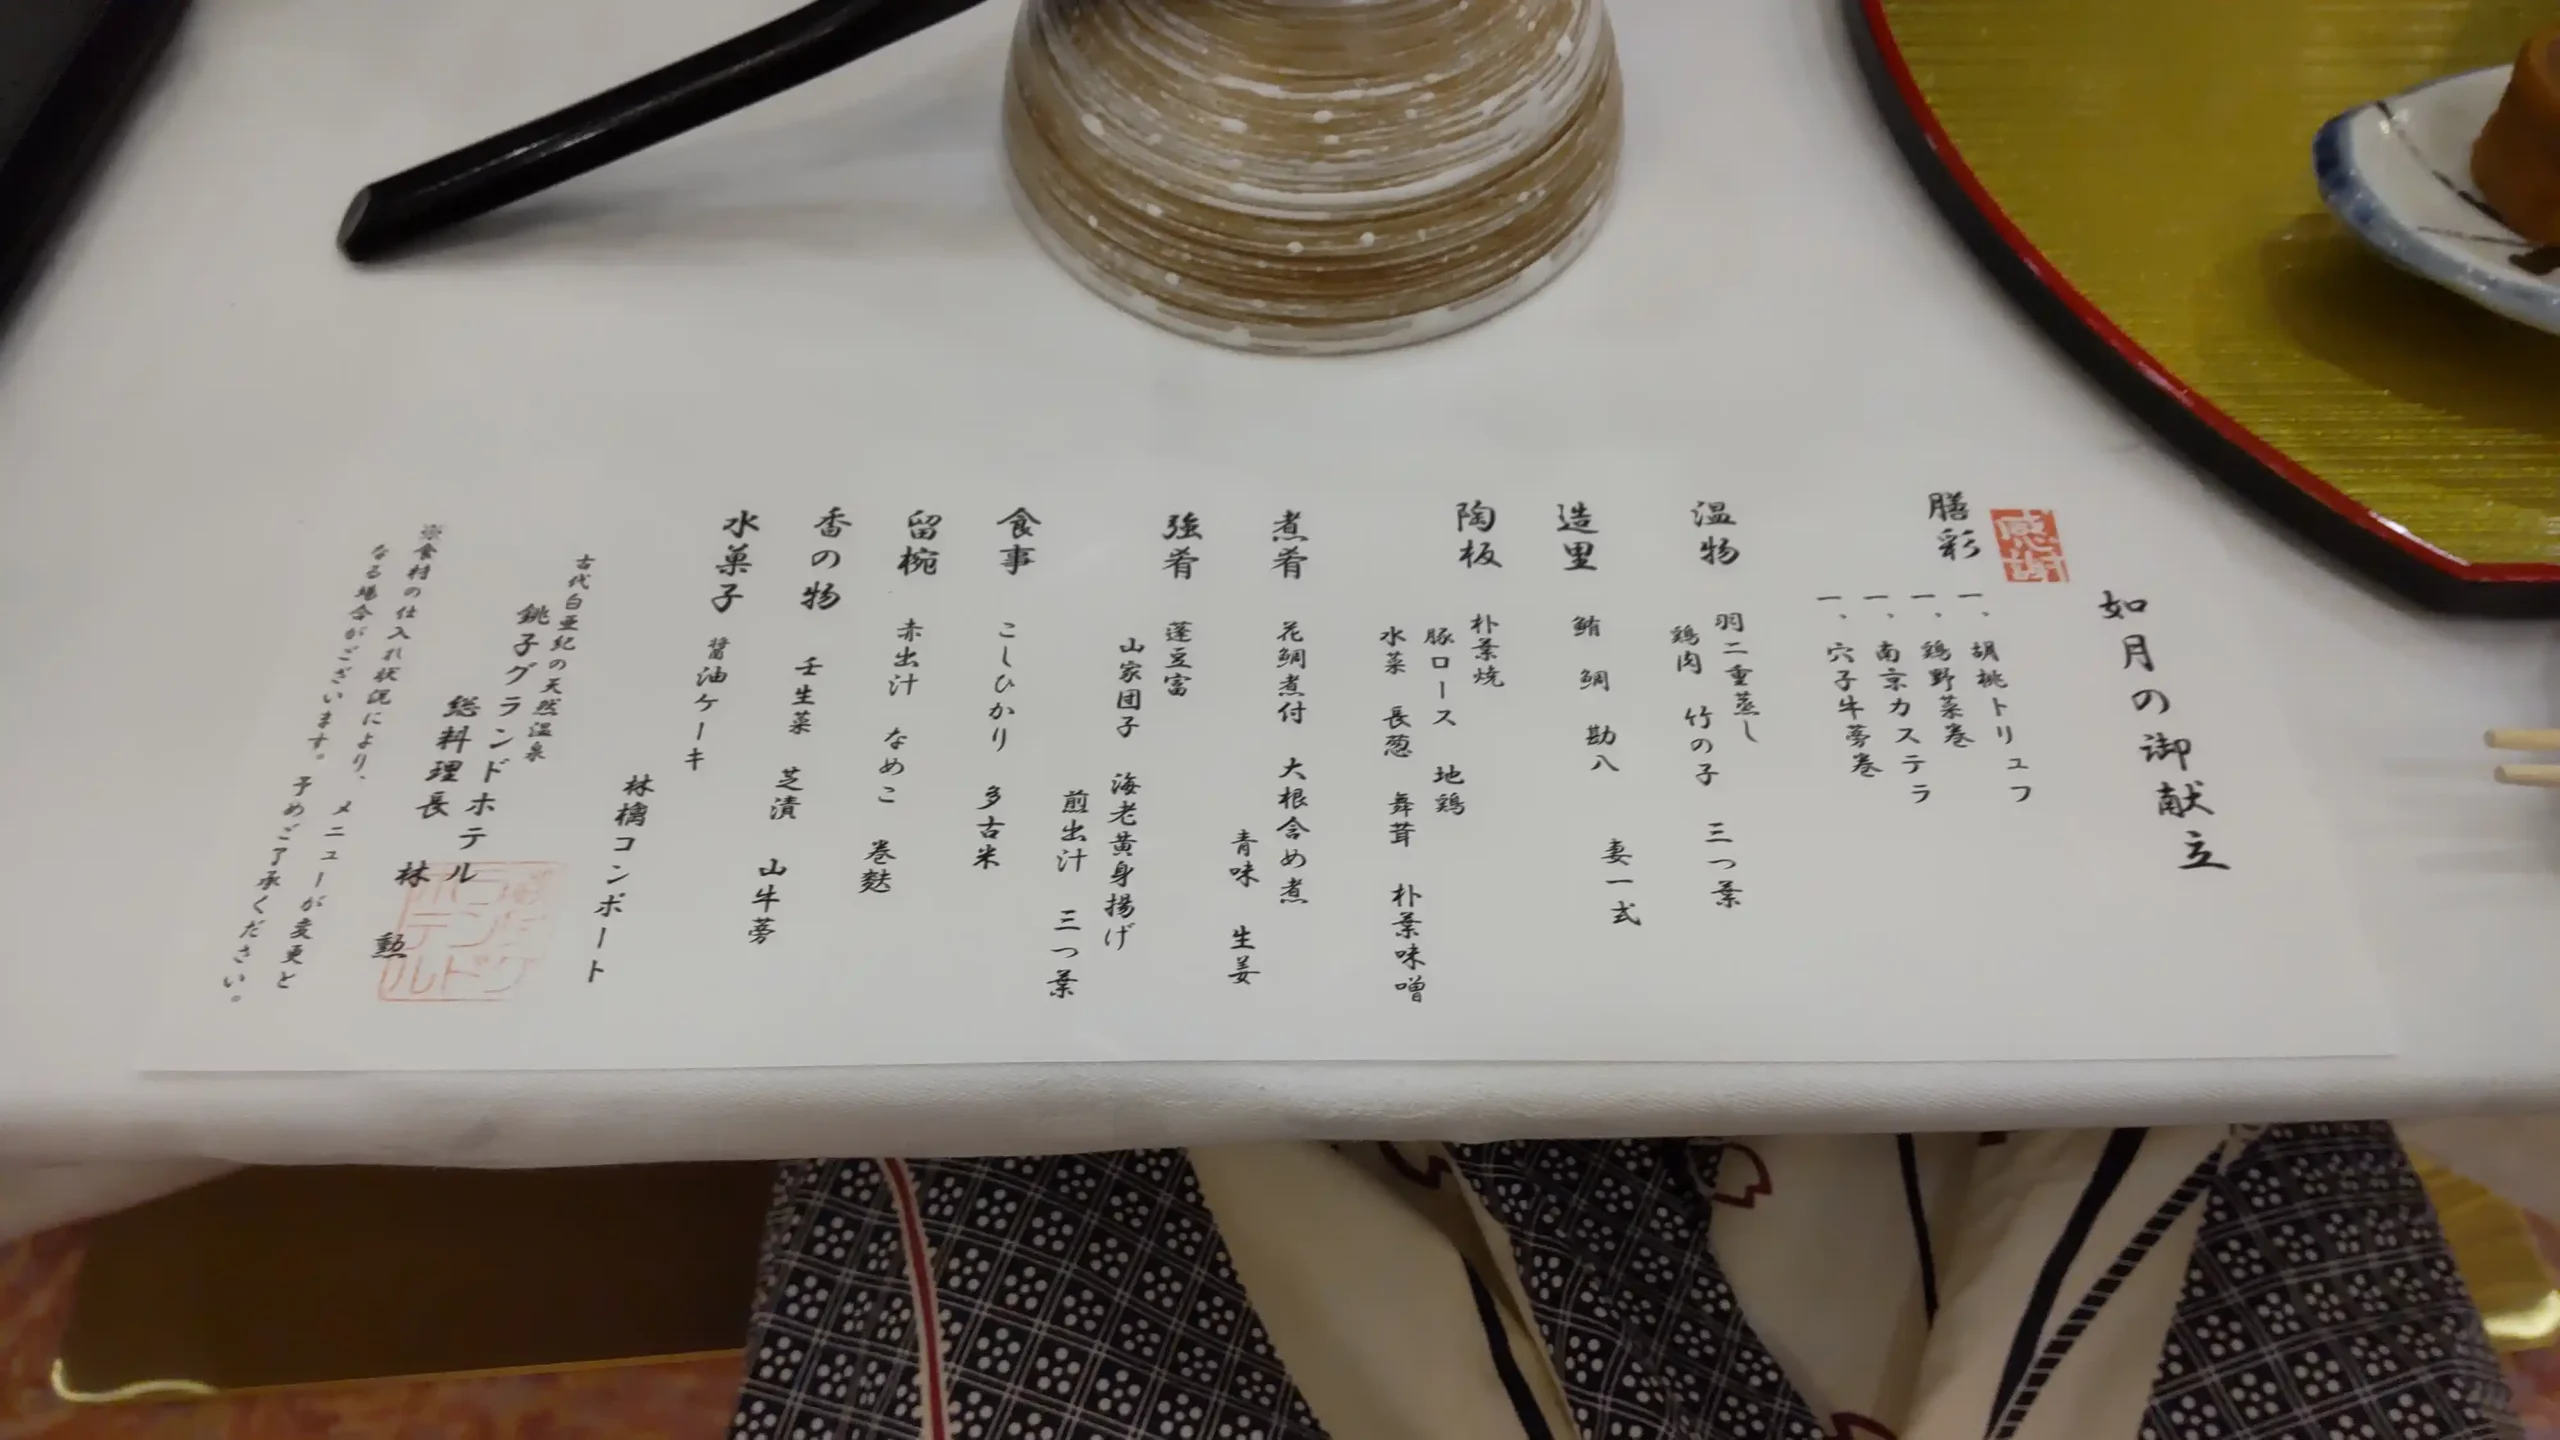 如月の御献立
感謝
膳彩
一、胡桃トリュフ
一、鶏野菜巻
一、南京カステラ
一、穴子牛蒡巻
温物 羽二重蒸し
鶏肉 竹の子 三つ葉
造里 鮪 鯛 勘八 妻一式
陶板 朴葉焼
豚ロース 地鶏
水菜 長葱 舞茸 朴葉味噌
煮肴 花鯛煮付 大根含め煮
青味 生姜
強肴 蓬豆富
山家団子 海老黄身揚げ
煎出汁 三つ葉
食事 こしひかり 多古米
留椀 赤出汁 なめこ 巻麩
香の物 壬生菜 芝漬 山牛蒡
水菓子 醤油ケーキ
林檎コンポート
古代白亜紀の天然温泉
銚子グランドホテル
総料理長 林 勲
※食材の仕入れ状況により、メニューが変更と
なる場合がございます。予めご了承ください。